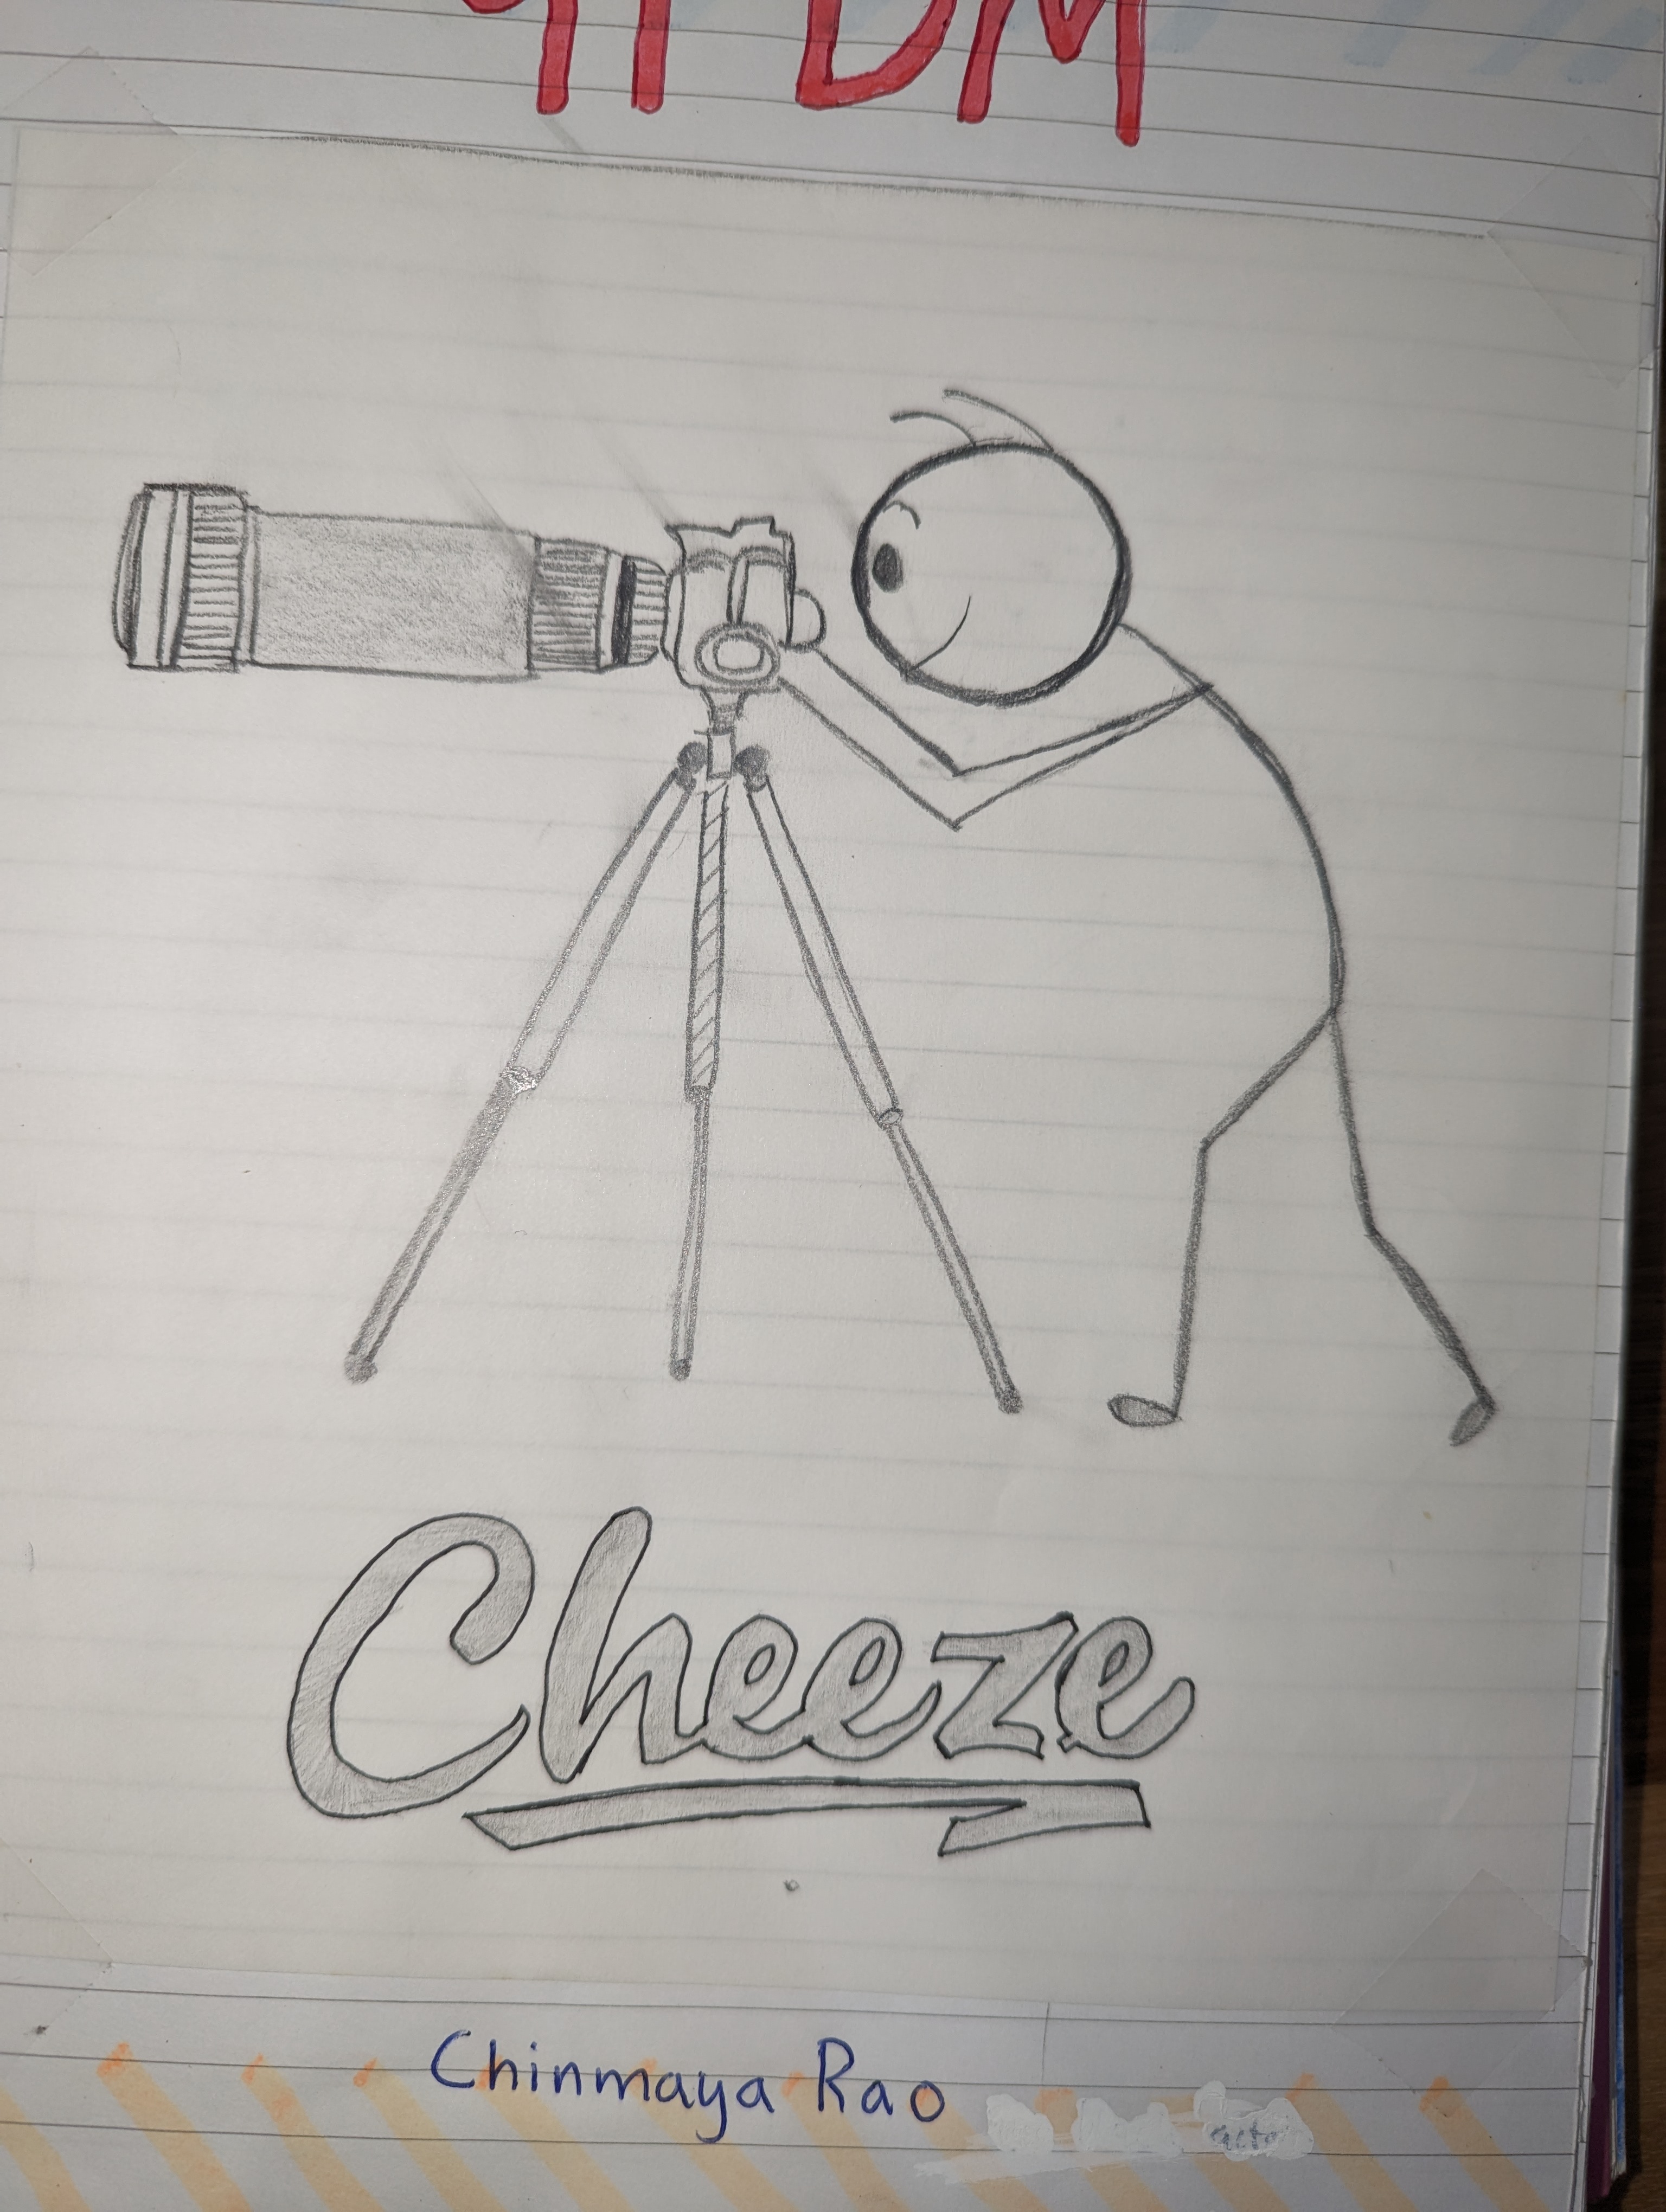 Cheeze
Chinmaya Rao